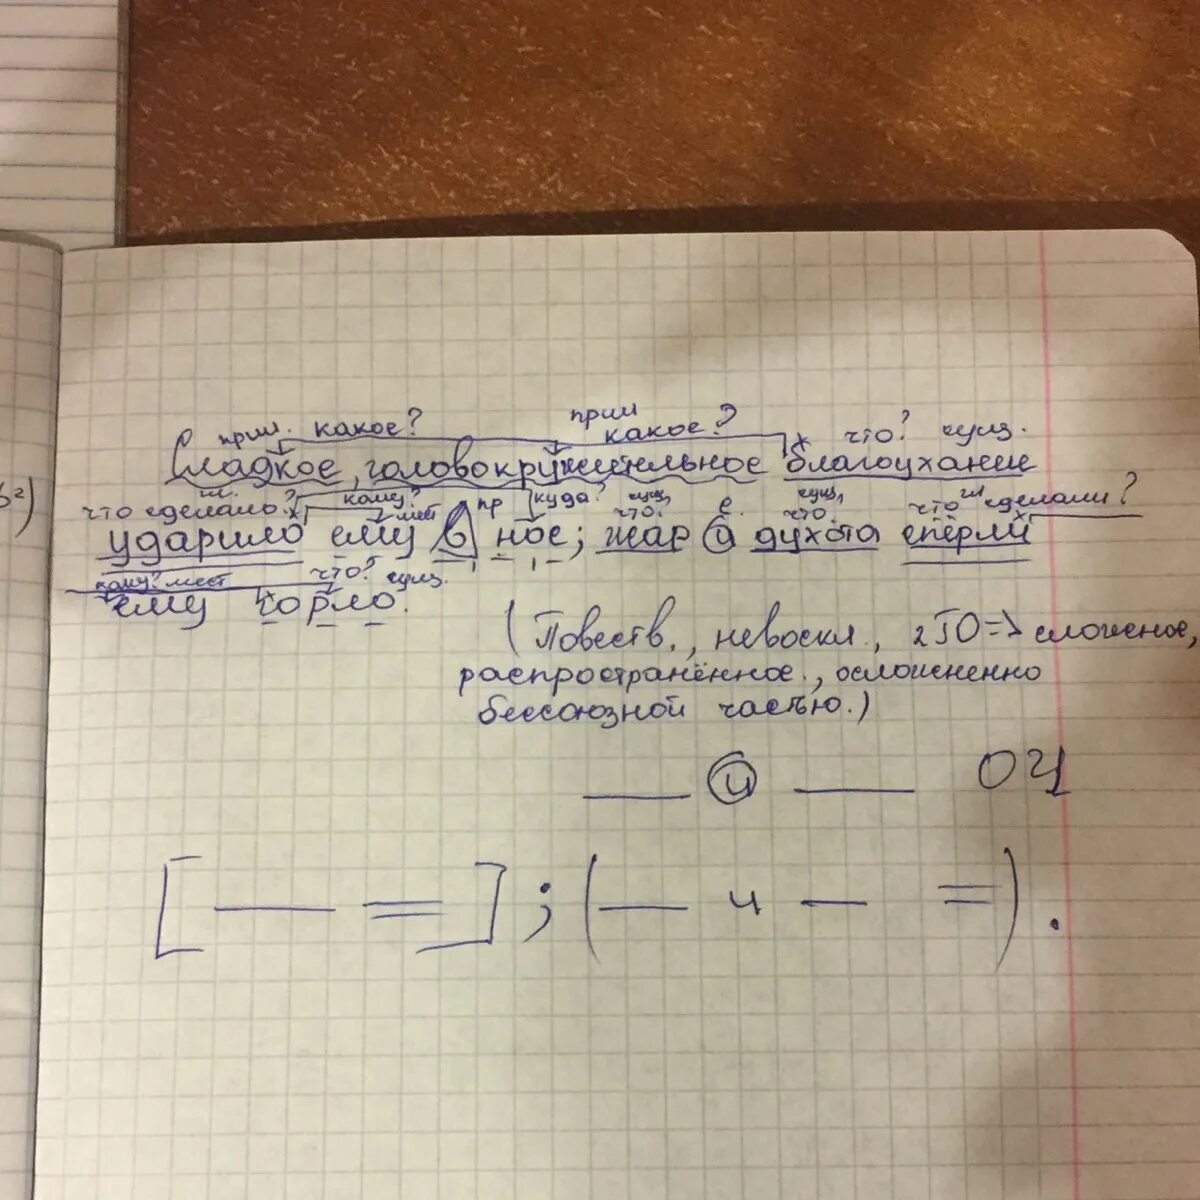 прил. какое? прил какое? что? сущ.
Сладкое, головокружительное благоухание
что сделало? гл. кому? мест пр куда? сущ, что? с. сущ, что. что сделали? гл
ударило ему в нос; жар и духота спёрли
кому? мест что? сущ.
ему горло.
(Повеств., невоскл., 2ГО=> сложное,
распространённое., осложненно
бессоюзной частью.)
и ОЧ
[ ] ; ( и ) .